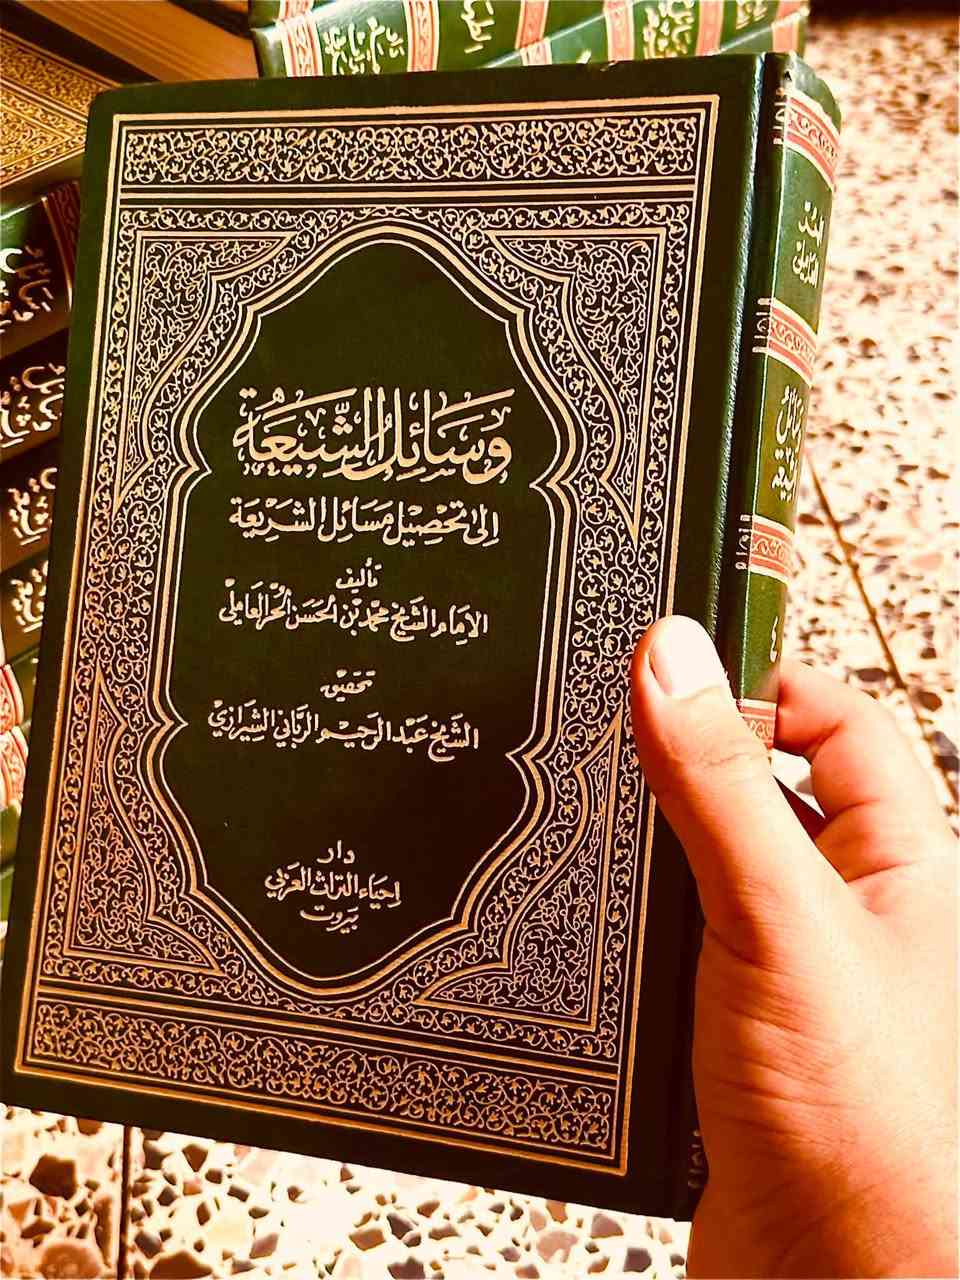 وَسَائِلُ الشِّيعَة
إِلىٰ تَحْصِيْلِ مَسَائِلِ الشَّرِيْعَة
تأليف
الإمام الشيخ محمد بن الحسن الحر العاملي
تحقيق
الشيخ عبد الرحيم الرباني الشيرازي
دار
إحياء التراث العربي
بيروت
الحر
العاملي
وسائل
الشيعة
٤